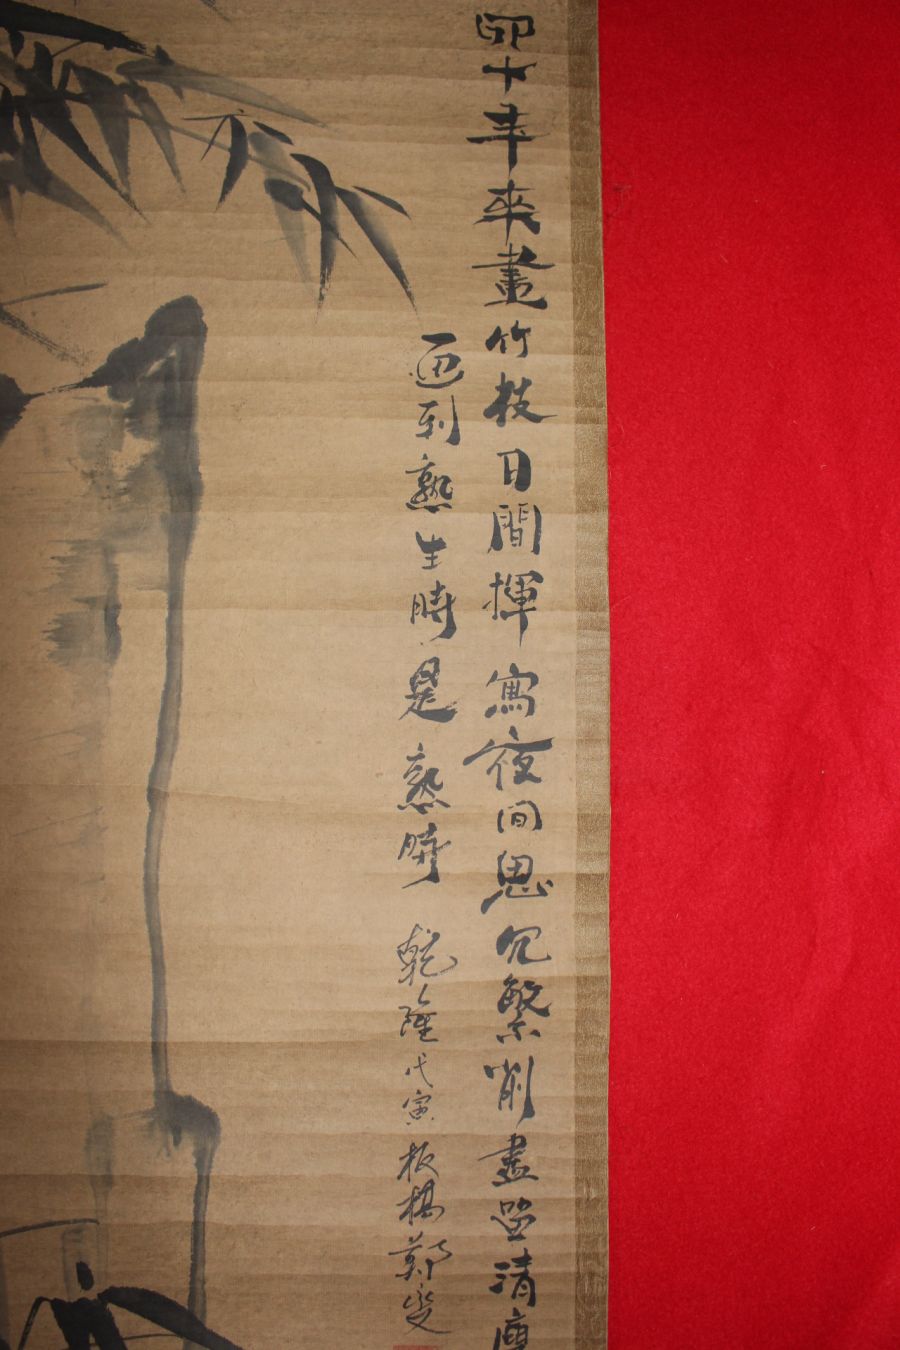 四十年來畫竹枝日間揮寫夜间思冗繁削盡留清
画到熟生時是熟時 乾隆戊寅 板橋鄭燮